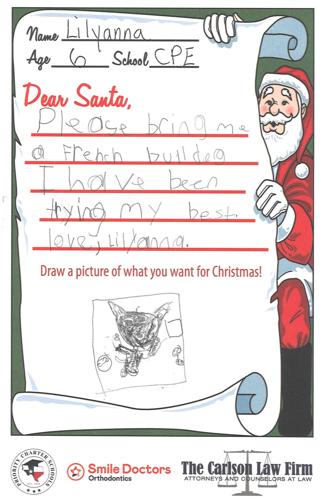 Name Lilyanna
Age 6 School CPE
Dear Santa,
Please bring me
a French bulldog
I have been
trying my best.
love, Lilyanna.
Draw a picture of what you want for Christmas!
PRIORITY CHARTER SCHOOLS
Smile Doctors
Orthodontics
The Carlson Law Firm
ATTORNEYS AND COUNSELORS AT LAW